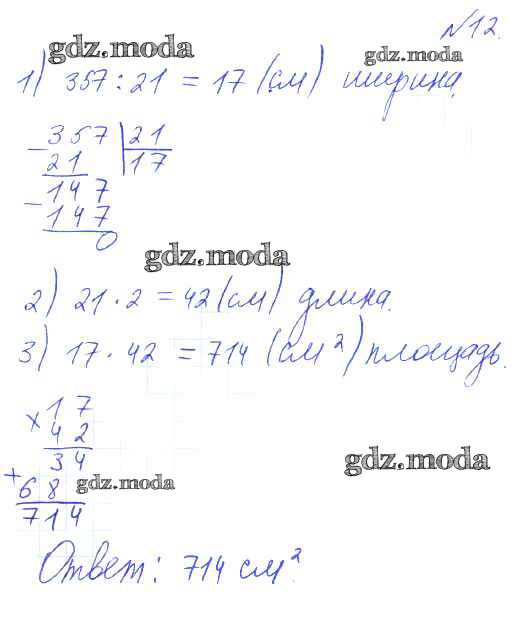 №12.
gdz.moda gdz.moda
1) 357 : 21 = 17 (см) ширина.
357 | 21
21 | 17
147
- 147
0
gdz.moda
2) 21 · 2 = 42 (см) длина.
3) 17 · 42 = 714 (см²) площадь.
× 17
42
34
gdz.moda
+ 68 gdz.moda
714
Ответ: 714 см².